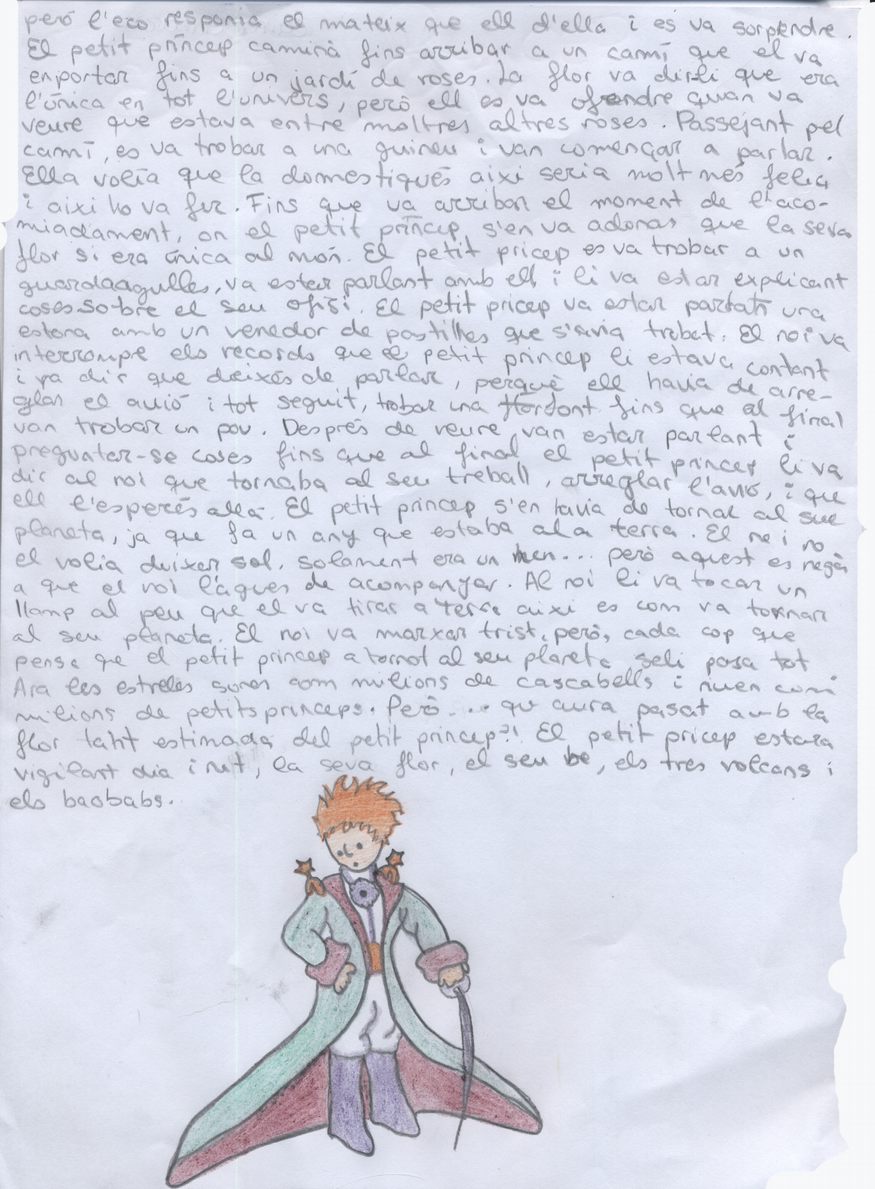 però l'eco responia el mateix que ell d'ella i es va sorpendre.
El petit príncep caminà fins arribar a un camí que el va
enportar fins a un jardí de roses. La flor va dirli que era
l'única en tot l'univers, però ell es va ofendre quan va
veure que estava entre moltres altres roses. Passejant pel
camí, es va trobar a una guineu i van començar a parlar.
Ella volia que la domestiqués aixi seria molt més feliç
i aixi ho va fer. Fins que va arribar el moment de l'aco-
miadament, on el petit príncep s'en va adonar que la seva
flor si era única al món. El petit pricep es va trobar a un
guardaagulles, va estar parlant amb ell i li va estar explicant
coses sobre el seu ofisi. El petit pricep va estar parlant una
estona amb un venedor de pastilles que s'avia trobat. El noi va
interrompe els records que el petit princep li estava contant
i va dir que deixés de parlar, perquè ell havia de arre-
glar el avió i tot seguit, trobar una font fins que al final
van trobar un pou. Després de veure van estar parlant i
preguntar-se coses fins que al final el petit princep li va
dir al noi que tornaba al seu treball, arreglar l'avió, i que
ell l'esperés allà. El petit princep s'en havia de tornar al sue
planeta, ja que fa un any que estaba a la terra. El noi no
el volia deixer sol, solament era un nen... però aquest es negà
a que el noi l'agues de acompanyar. Al noi li va tocar un
llamp al peu que el va tirar a terra aixi es com va tornar
al seu planeta. El noi va marxar trist, però, cada cop que
pensa que el petit princep a tornat al seu planeta seli pasa tot
Ara les estreles sonen com milions de cascabells i riuen com
milions de petits princeps. Però... que aura pasat amb la
flor taht estimada del petit princep?! El petit pricep estara
vigilant dia i nit, la seva flor, el seu be, els tres volcans i
els baobabs.